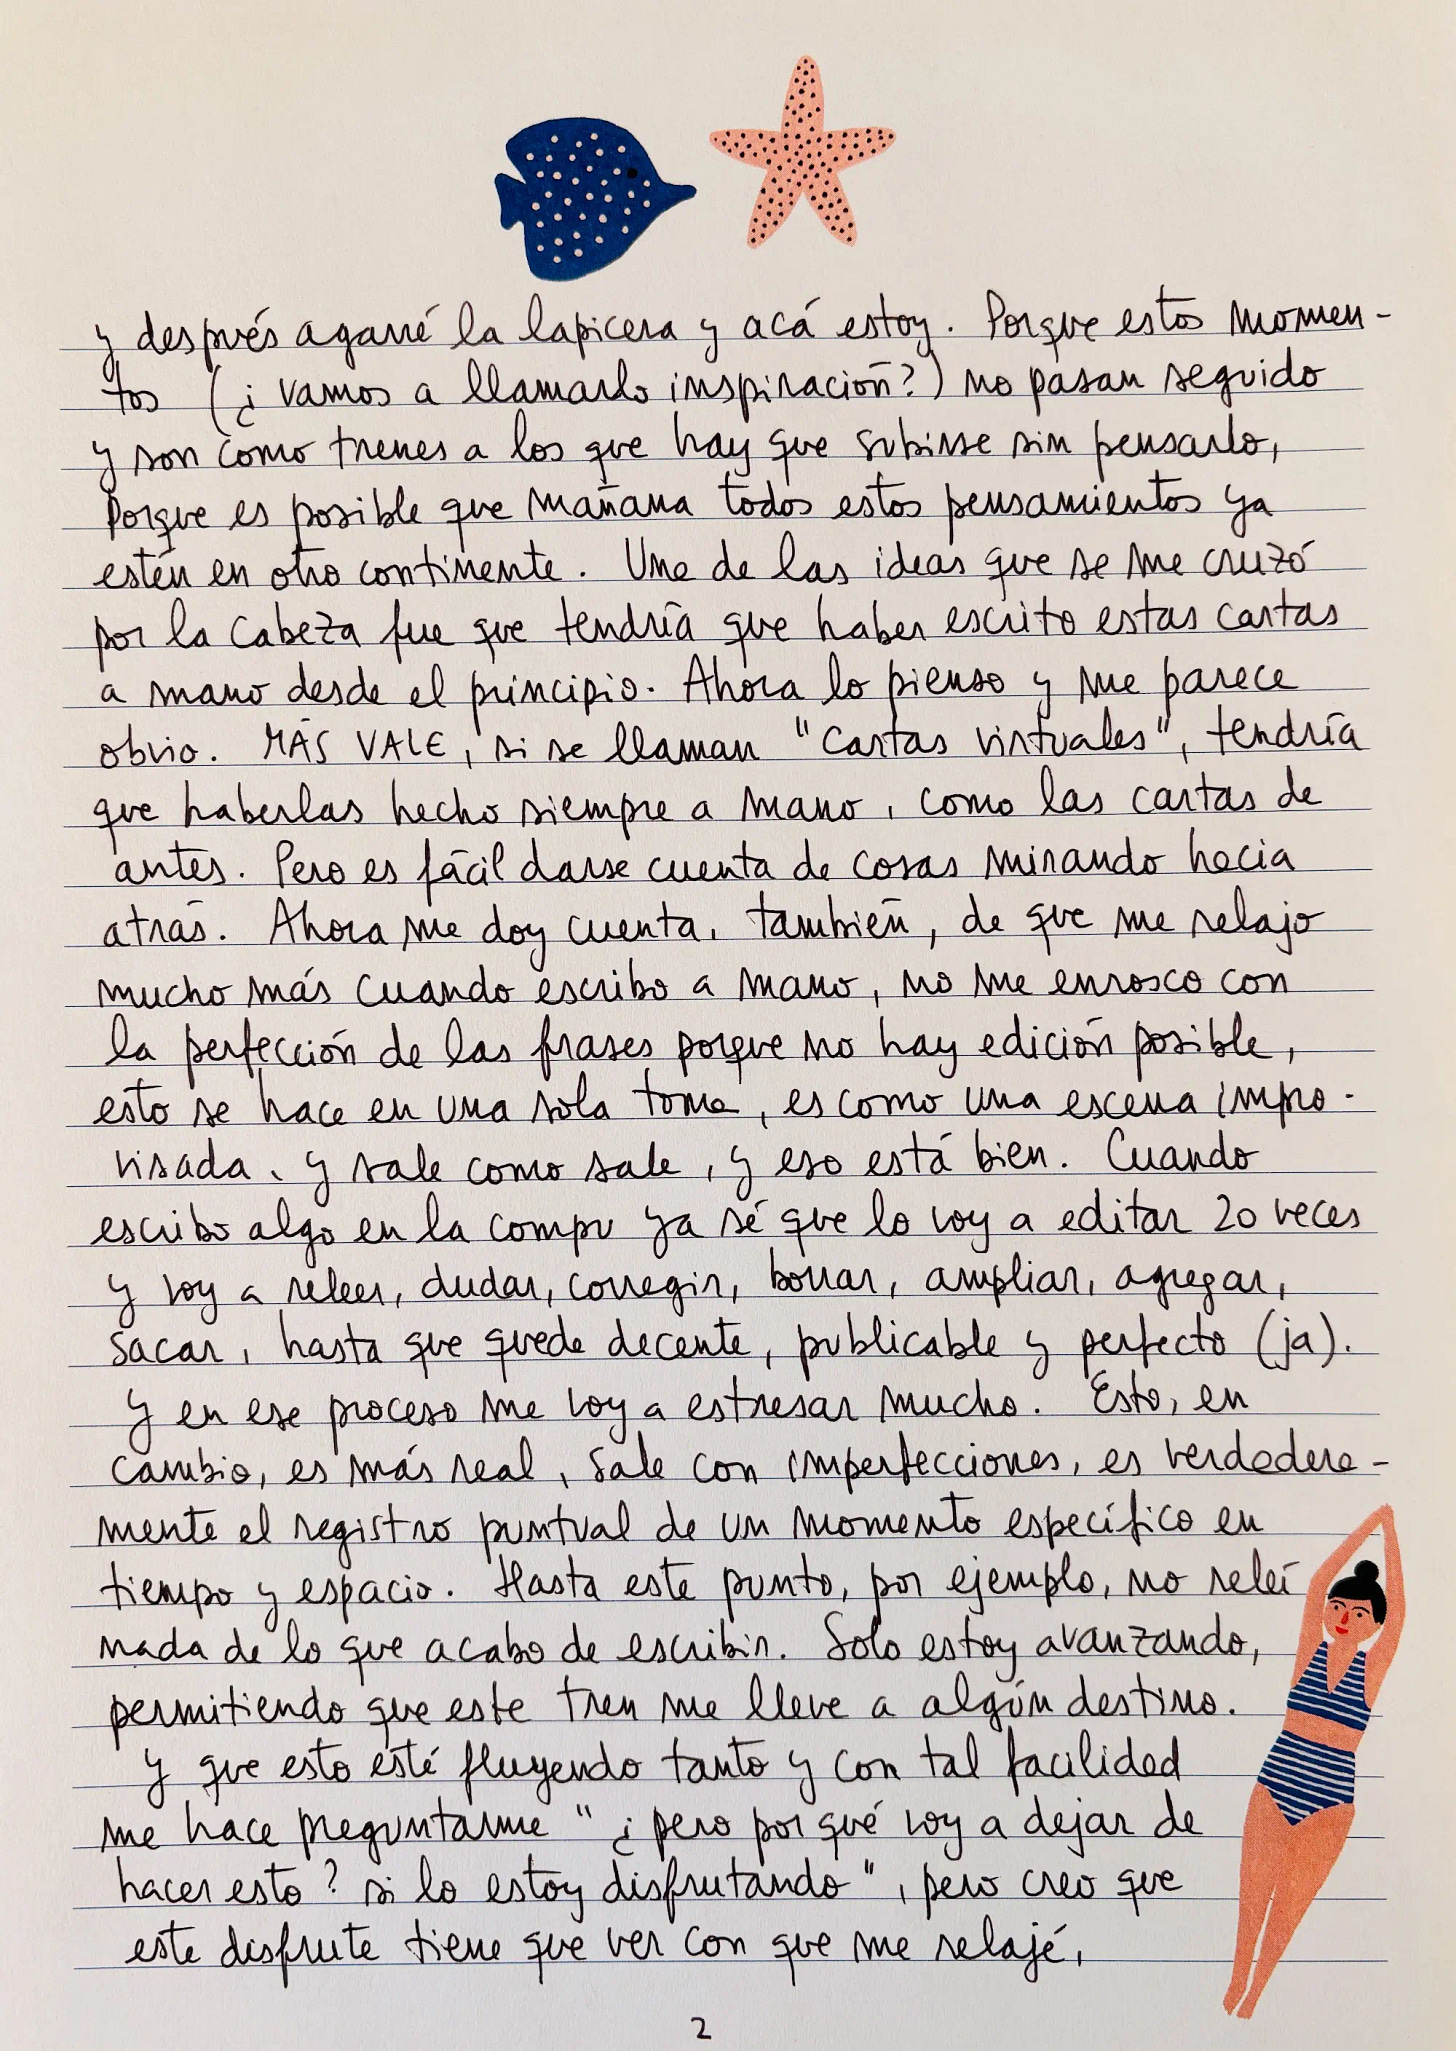 y después agarré la lapicera y acá estoy. Porque estos momen-
tos (¿vamos a llamarlo inspiración?) no pasan seguido
y son como trenes a los que hay que subirse sin pensarlo,
porque es posible que mañana todos estos pensamientos ya
estén en otro continente. Una de las ideas que se me cruzó
por la cabeza fue que tendría que haber escrito estas cartas
a mano desde el principio. Ahora lo pienso y me parece
obvio. MÁS VALE, si se llaman "Cartas virtuales", tendría
que haberlas hecho siempre a mano, como las cartas de
antes. Pero es fácil darse cuenta de cosas mirando hacia
atrás. Ahora me doy cuenta, también, de que me relajo
mucho más cuando escribo a mano, no me enrosco con
la perfección de las frases porque no hay edición posible,
esto se hace en una sola toma, es como una escena impro-
visada, y sale como sale, y eso está bien. Cuando
escribo algo en la compu ya sé que lo voy a editar 20 veces
y voy a releer, dudar, corregir, borrar, ampliar, agregar,
sacar, hasta que quede decente, publicable y perfecto (ja).
Y en ese proceso me voy a estresar mucho. Esto, en
cambio, es más real, sale con imperfecciones, es verdadera-
mente el registro puntual de un momento específico en
tiempo y espacio. Hasta este punto, por ejemplo, no releí
nada de lo que acabo de escribir. Solo estoy avanzando,
permitiendo que este tren me lleve a algún destino.
Y que esto esté fluyendo tanto y con tal facilidad
me hace preguntarme "¿pero por qué voy a dejar de
hacer esto? si lo estoy disfrutando", pero creo que
este disfrute tiene que ver con que me relajé,
2